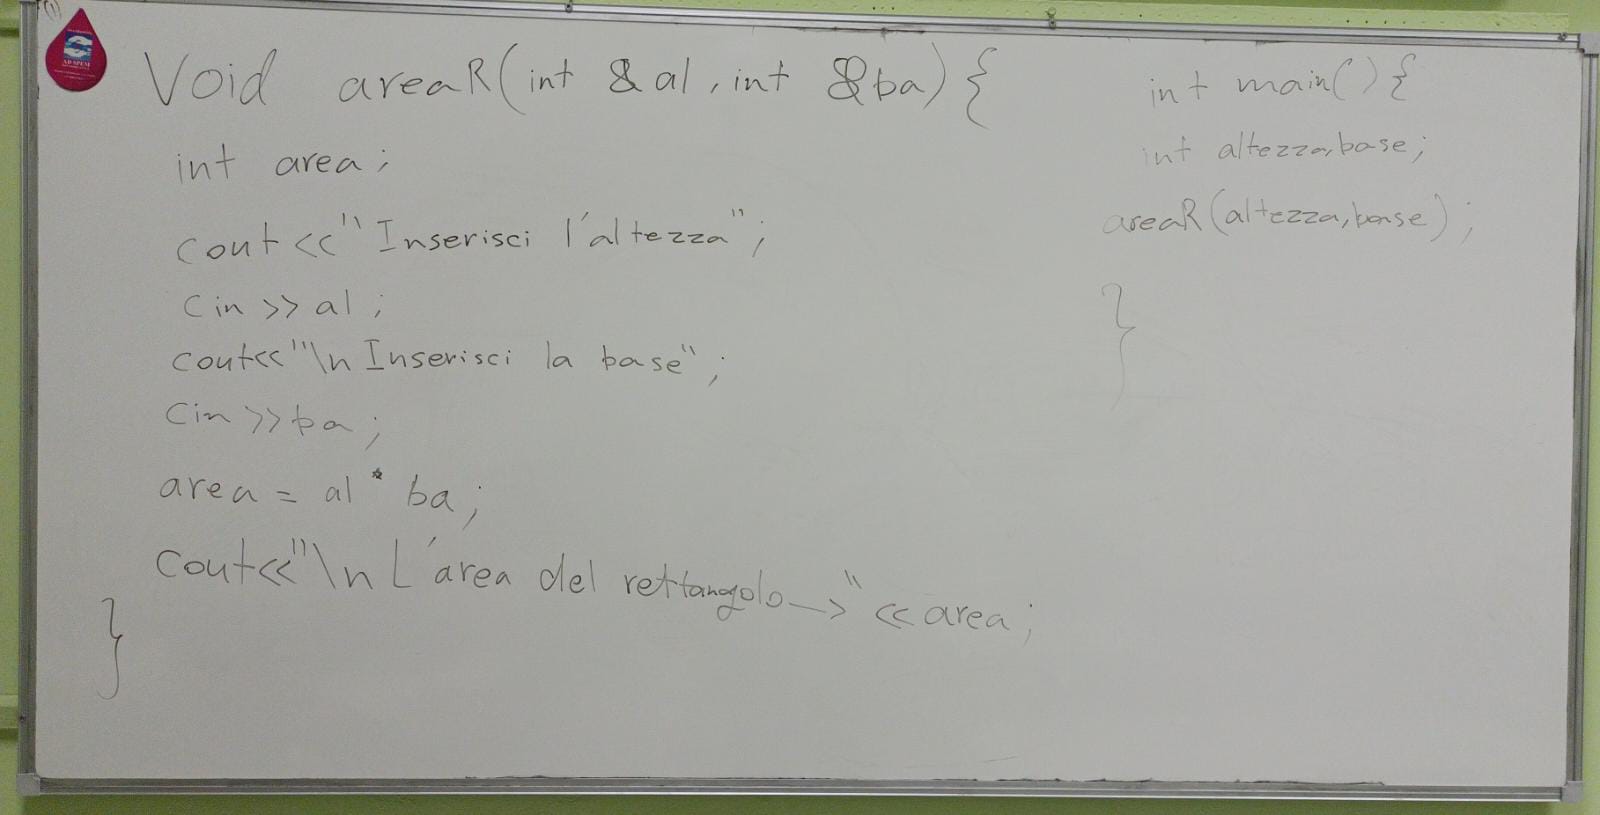 Void areaR(int &al, int &ba){
int area;
cout<<"Inserisci l'altezza";
cin>>al;
cout<<"\n Inserisci la base";
cin>>ba;
area = al * ba;
cout<<"\n L'area del rettangolo-->"<<area;
}
int main(){
int altezza,base;
areaR(altezza,base);
}